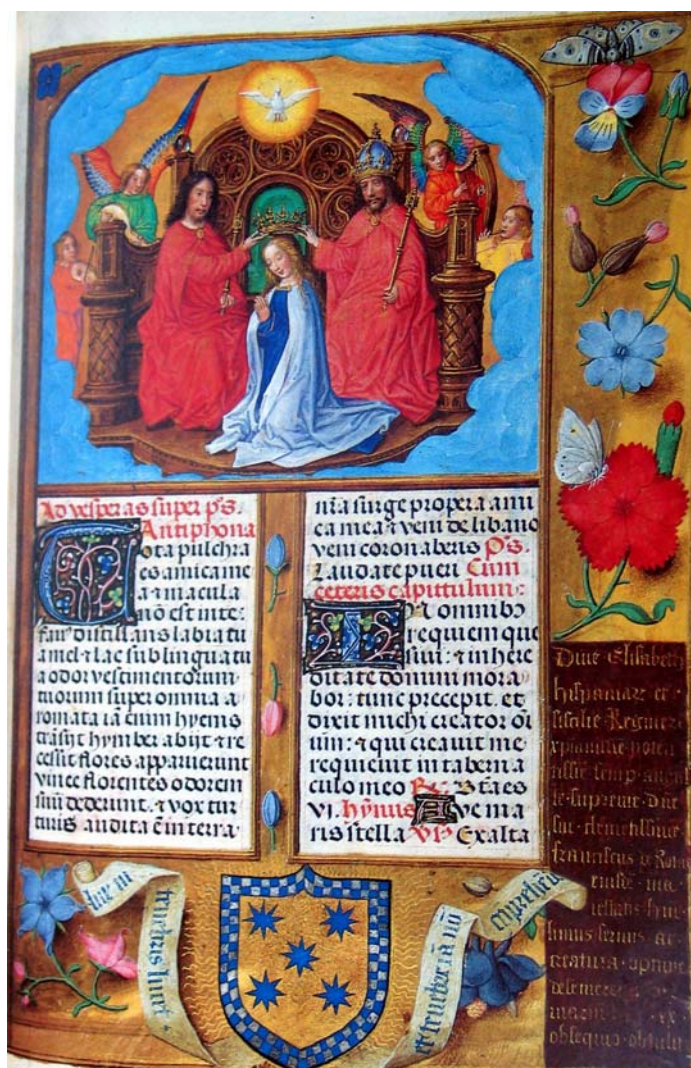 Ad vesperas super p̄s.
Antiphona
Tota pulchra
es amica me
a ⁊ macula
nō est in te:
fau9 distillans labia tu
a mel ⁊ lac sub lingua tu
a odor vestimentorum
tuorum super omnia a
romata iā enim hyems
trāsijt hymber abijt ⁊ re
cessit flores apparuerunt
vinee florentes odorem
suū dederunt. ⁊ vox tur
turis audita ē in terra
nr̄a surge propera ami
ca mea ⁊ veni de libano
veni coronaberis Ps.
Laudate pueri Cum
ceteris capittulum:
In omnibꝫ
requiem que
siui: ⁊ in here
ditate domini mora
bor: tunc precepit. et
dixit michi creator oī
um: ⁊ qui creauit me
requieuit in taberna
culo meo R. Btāes
vi. hȳnus Ave ma
ris stella V. Exalta
Diue Elisabeth
hispaniaꝝ et
sicilie Regine
supreme due
sue clemētissime
franciscus de
eiusdē
humilimus seruus ac
creatura
obsequio obtulit
tenebris lumē